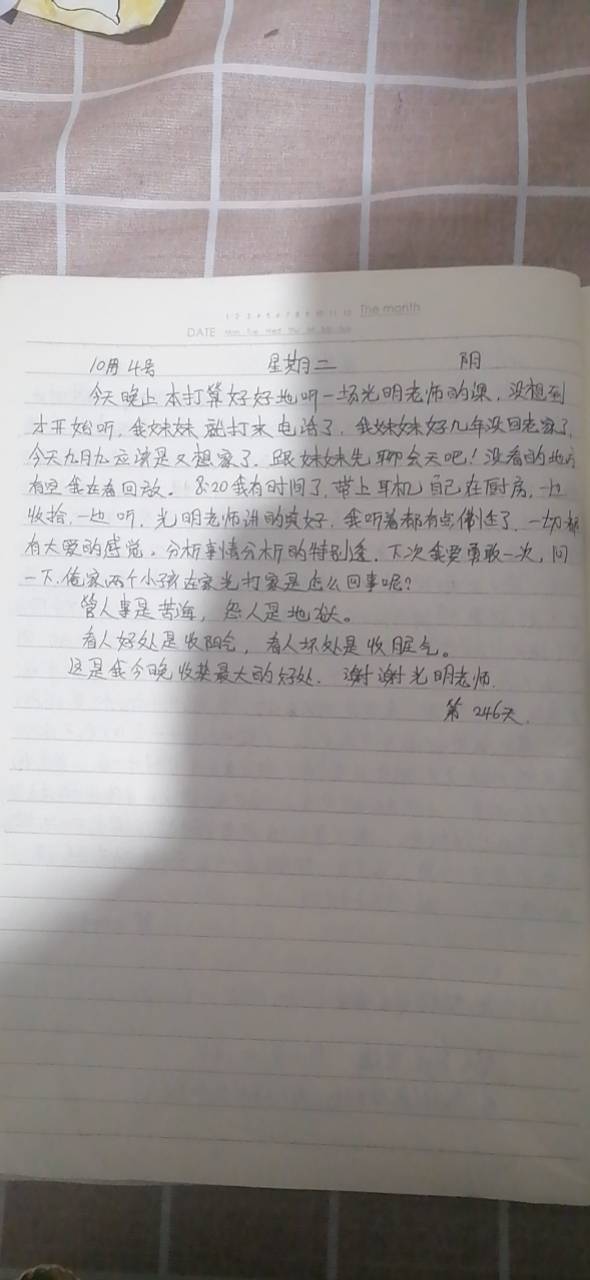 1 2 3 4 5 6 7 8 9 10 11 12 The month
DATE Mon Tue Wed Thu Fri Sat Sun
10月4号 星期二 阴
今天晚上本打算好好地听一场光明老师的课,没想到
才开始听,我妹妹就打来电话了,我妹妹好几年没回老家了,
今天九月九应该是又想家了。跟妹妹先聊会天吧!没看的地方
有空我在看回放。8:20我有时间了,带上耳机自己在厨房,一边
收拾,一边听,光明老师讲的真好,我听着都有点佛法了,一切都
有大爱的感觉。分析事情分析的特别透。下次我要勇敢一次,问
一下,俺家两个小孩在家光打家是怎么回事呢?
管人事是苦海,怨人是地狱。
看人好处是收阳气,看人坏处是收脏气。
这是我今晚收获最大的好处。谢谢光明老师.
第246天.